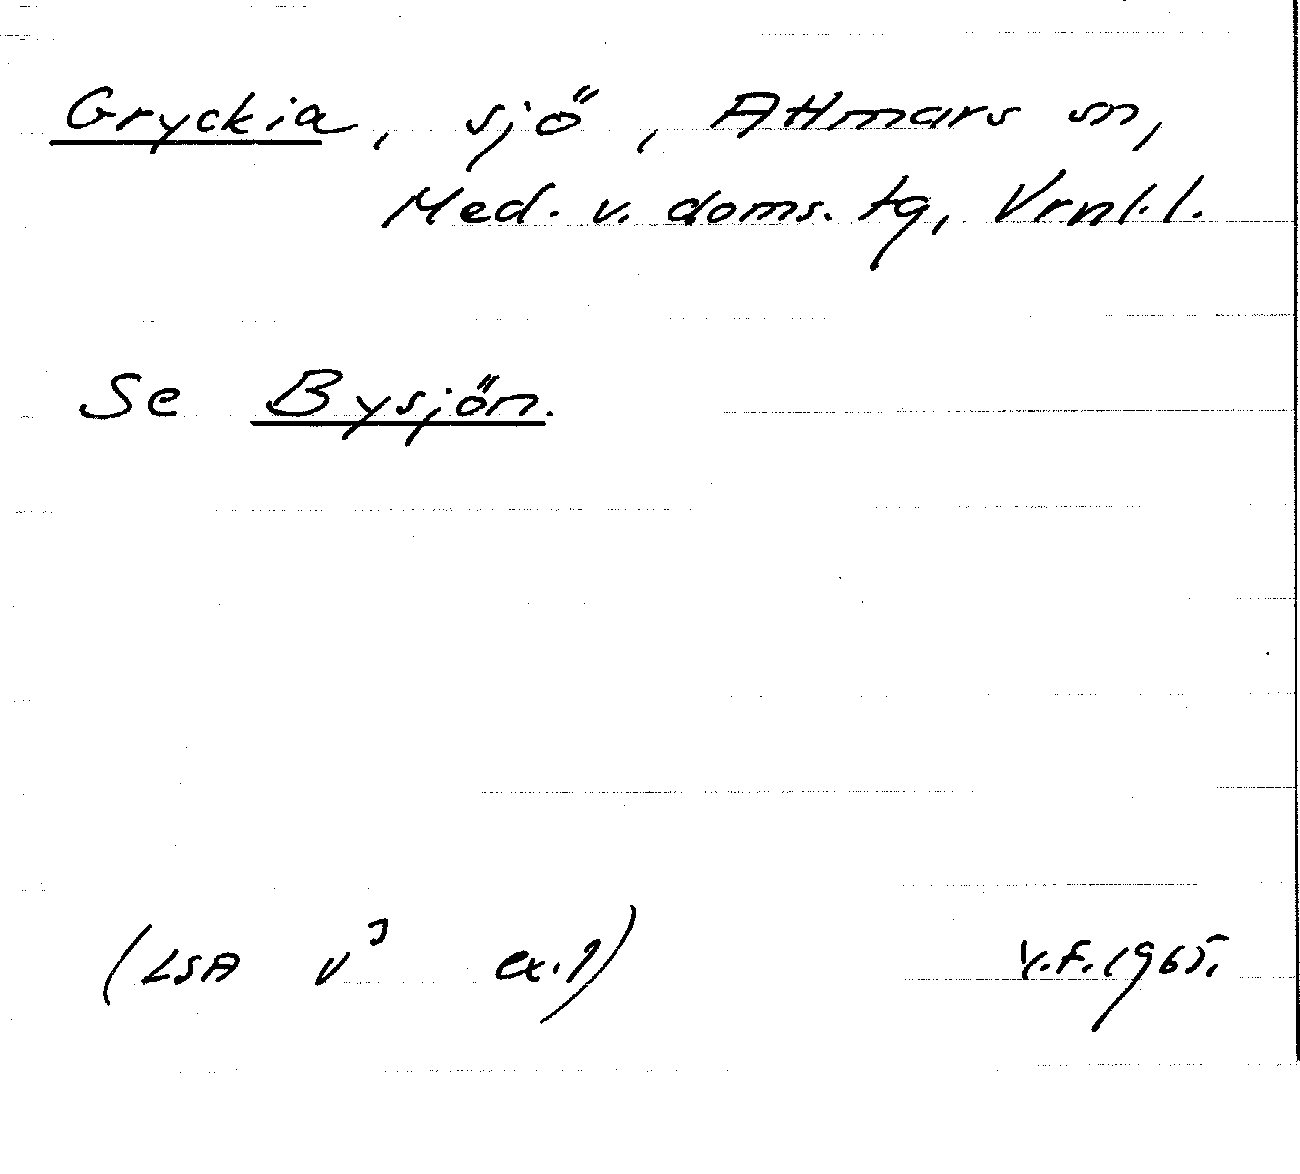 Gryckia, sjö, Attmars sn,
Med. v. doms. tg, Vrnl. l.
Se Bysjön.
(LSA V³ ex. 1) V.F. 1965.